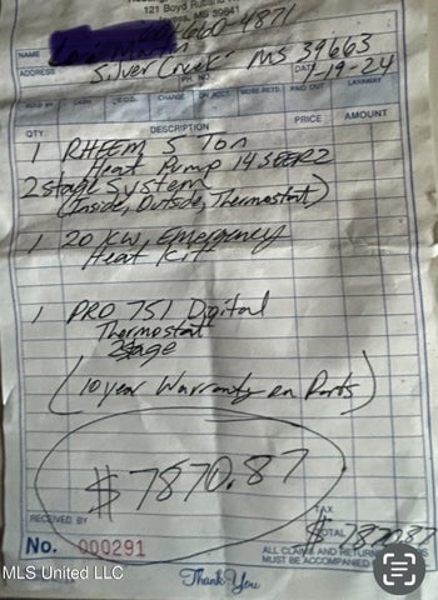 121 Boyd Rutland
MS 39641
660-4871
NAME
Silver Creek MS 39663
ADDRESS
PH. NO.
DATE 1-19-24
SOLD BY CASH C.O.D. CHARGE ON ACCT. MDSE. RETD. PAID OUT LAYAWAY
QTY. DESCRIPTION PRICE AMOUNT
1 RHEEM 5 Ton
Heat Pump 14 SEER2
2 stage System
(Inside, Outside, Thermostat)
1 20 KW, Emergency
Heat Kit
1 PRO 751 Digital
Thermostat
2stage
(10 year Warranty on Parts)
$7870.87
RECEIVED BY
TAX
TOTAL $7870.87
No. 000291
ALL CLAIMS AND RETURN
MUST BE ACCOMPANIED
MLS United LLC
Thank You